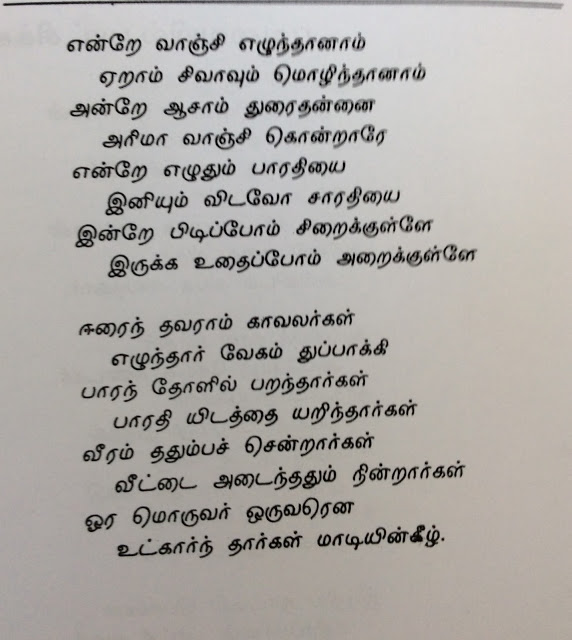 என்றே வாஞ்சி எழுந்தானாம்
ஏறாம் சிவாவும் மொழிந்தானாம்
அன்றே ஆசாம் துரைதன்னை
அரிமா வாஞ்சி கொன்றாரே
என்றே எழுதும் பாரதியை
இனியும் விடவோ சாரதியை
இன்றே பிடிப்போம் சிறைக்குள்ளே
இருக்க உதைப்போம் அறைக்குள்ளே
ஈரைந் தவராம் காவலர்கள்
எழுந்தார் வேகம் துப்பாக்கி
பாரந் தோளில் பறந்தார்கள்
பாரதி யிடத்தை யறிந்தார்கள்
வீரம் ததும்பச் சென்றார்கள்
வீட்டை அடைந்ததும் நின்றார்கள்
ஓர மொருவர் ஒருவரென
உட்கார்ந் தார்கள் மாடியின்கீழ்.